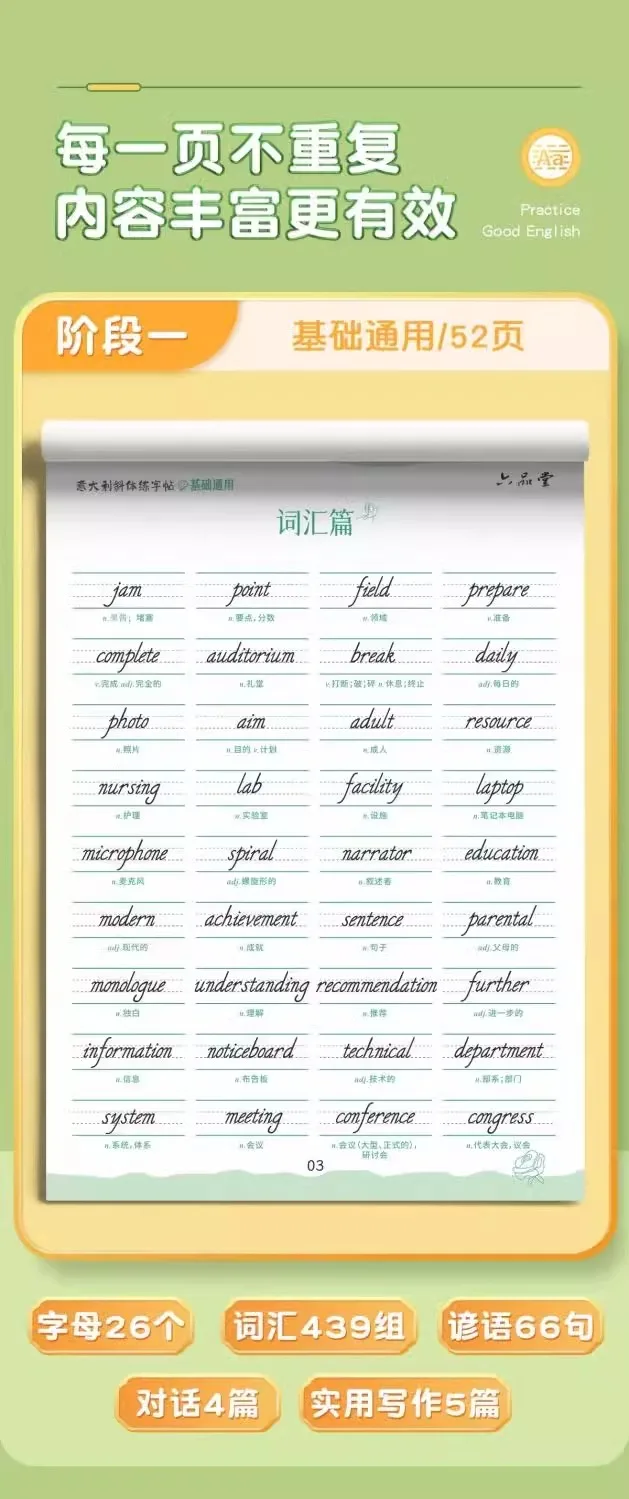 每一页不重复
内容丰富更有效
Aa
Practice
Good English
阶段一
基础通用/52页
意大利斜体练字帖 基础通用
六品堂
词汇篇
jam point field prepare
n.果酱；堵塞 n.要点,分数 n.领域 v.准备
complete auditorium break daily
v.完成 adj.完全的 n.礼堂 v.打断;破;碎 n.休息;终止 adj.每日的
photo aim adult resource
n.照片 n.目的 v.计划 n.成人 n.资源
nursing lab facility laptop
n.护理 n.实验室 n.设施 n.笔记本电脑
microphone spiral narrator education
n.麦克风 adj.螺旋形的 n.叙述者 n.教育
modern achievement sentence parental
adj.现代的 n.成就 n.句子 adj.父母的
monologue understanding recommendation further
n.独白 n.理解 n.推荐 adj.进一步的
information noticeboard technical department
n.信息 n.布告板 adj.技术的 n.部系;部门
system meeting conference congress
n.系统,体系 n.会议 n.会议(大型、正式的), n.代表大会,议会
研讨会
03
字母26个 词汇439组 谚语66句
对话4篇 实用写作5篇